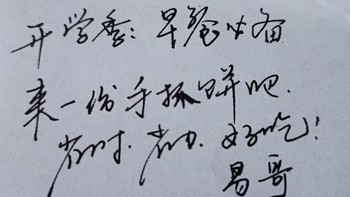 开学季：早餐必备
来一份手抓饼吧.
省时.省力.好吃！
易哥